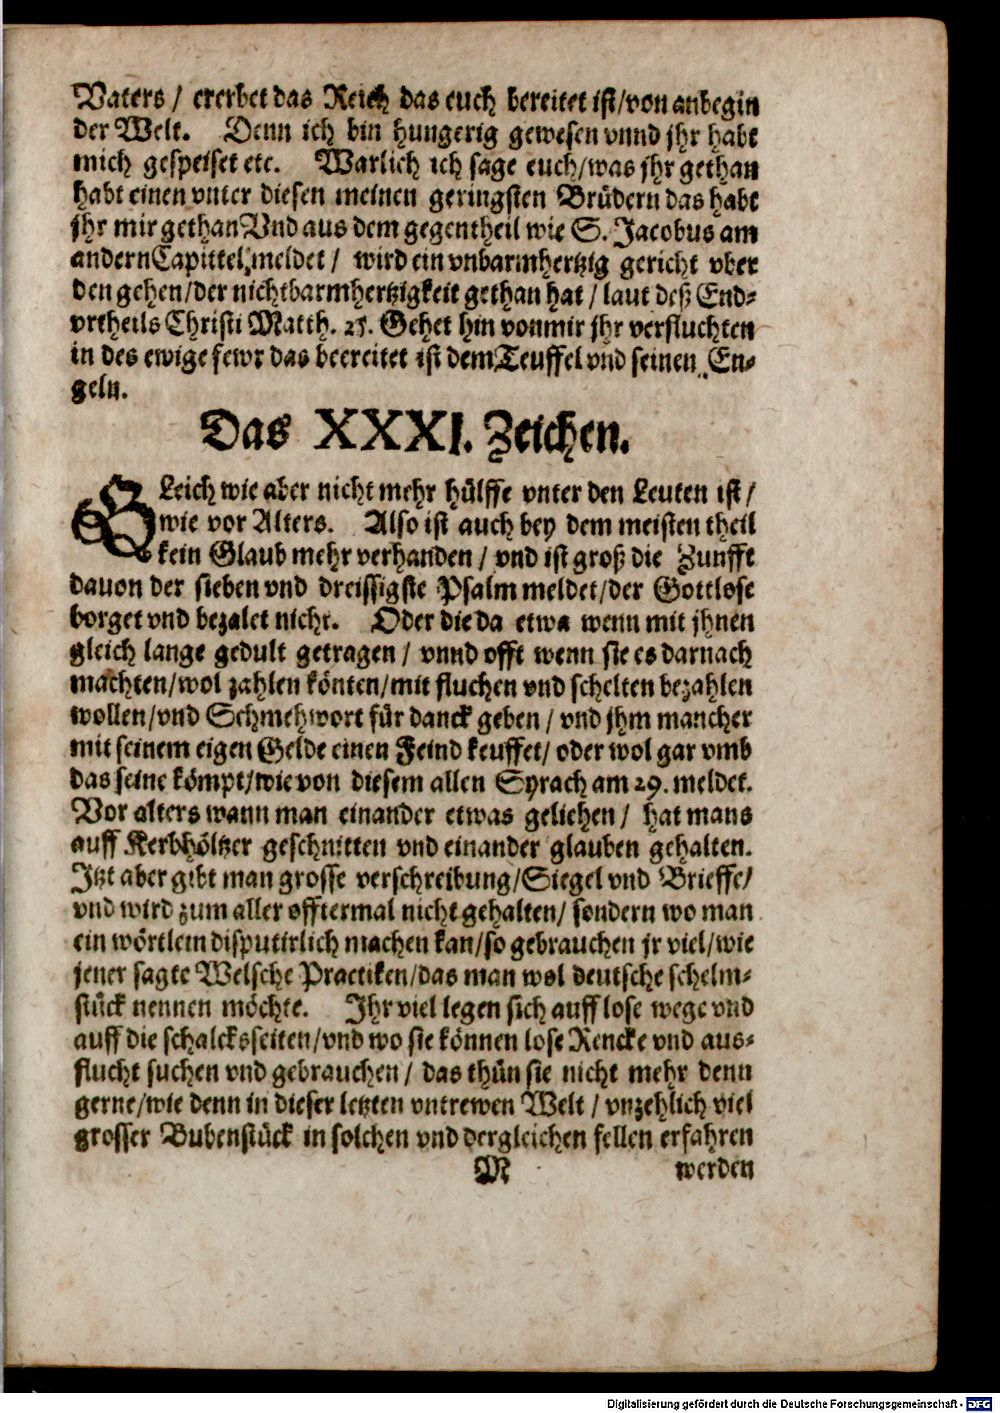 Vaters / ererbet das Reich das euch bereitet ist/von anbegin
der Welt. Denn ich bin hungerig gewesen vnnd jhr habt
mich gespeiset etc. Warlich ich sage euch/was jhr gethan
habt einen vnter diesen meinen geringsten Brüdern das habt
jhr mir gethan Vnd aus dem gegentheil wie S. Jacobus am
andern Capittel meldet / wird ein vnbarmhertzig gericht vber
den gehen/der nicht barmhertzigkeit gethan hat / laut deß End-
vrtheils Christi Matth. 25. Gehet hin von mir jhr verfluchten
in das ewige fewr das beereitet ist dem Teuffel vnd seinen En-
geln.
Das XXXI. Zeichen.
GLeich wie aber nicht mehr hülffe vnter den Leuten ist /
wie vor Alters. Also ist auch bey dem meisten theil
kein Glaub mehr verhanden / vnd ist groß die Zunfft
dauon der sieben vnd dreissigste Psalm meldet/der Gottlose
borget vnd bezalet nicht. Oder die da etwa wenn mit jhnen
gleich lange gedult getragen / vnnd offt wenn sie es darnach
machten/wol zahlen könten/mit fluchen vnd schelten bezahlen
wollen/vnd Schmehwort für danck geben / vnd jhm mancher
mit seinem eigen Gelde einen Feind keuffet/ oder wol gar vmb
das seine kömpt/wie von diesem allen Syrach am 29. meldet.
Vor alters wann man einander etwas geliehen / hat mans
auff Kerbhöltzer geschnitten vnd einander glauben gehalten.
Jtzt aber gibt man grosse verschreibung/Siegel vnd Brieffe/
vnd wird zum aller offtermal nicht gehalten/ sondern wo man
ein wörtlein disputirlich machen kan/so gebrauchen jr viel/wie
jener sagte Welsche Practiken/das man wol deutsche schelm-
stück nennen möchte. Jhr viel legen sich auff lose wege vnd
auff die schalcksseiten/vnd wo sie können lose Rencke vnd aus-
flucht suchen vnd gebrauchen / das thün sie nicht mehr denn
gerne/wie denn in dieser letzten vntrewen Welt / vnzehlich viel
grosser Bubenstück in solchen vnd dergleichen fellen erfahren
M werden
Digitalisierung gefördert durch die Deutsche Forschungsgemeinschaft - DFG